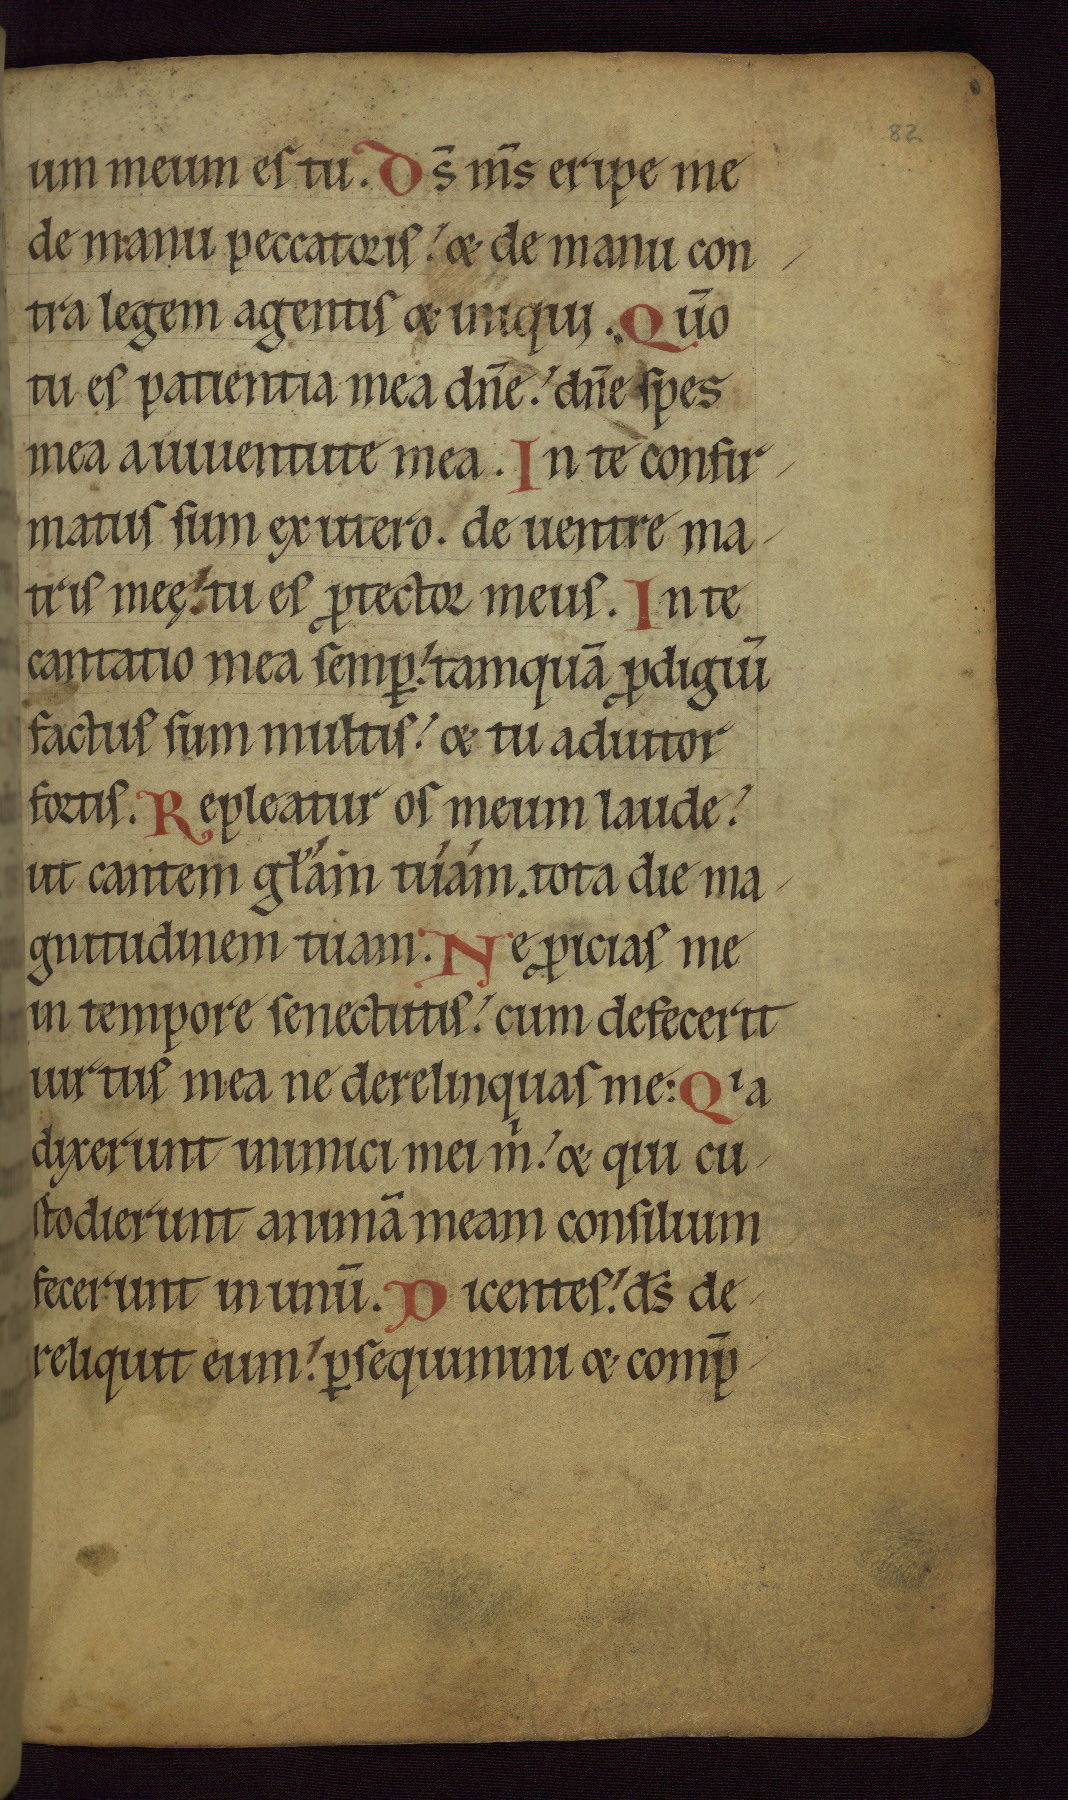 82
um meum es tu. Ds̄ m̄s eripe me
de manu peccatoris! & de manu con
tra legem agentis & iniqui. Qūo
tu es patientia mea dn̄e! dn̄e spes
mea a iuuentute mea. In te confir
matus sum ex utero. de uentre ma
tris meę! tu es ꝓtector meus. In te
cantatio mea semꝑ! tamquā ꝓdigiū
factus sum multis! & tu adiutor
fortis. Repleatur os meum laude!
ut cantem gl̄am tuam. tota die ma
gnitudinem tuam. Ne ꝓicias me
in tempore senectutis! cum defecerit
uirtus mea ne derelinquas me: Qⁱa
dixerunt inimici mei m̍! & qui cu
stodierunt animā meam consilium
fecerunt in unū. Dicentes! ds̄ de
reliquit eum! ꝑsequimini & comp̄